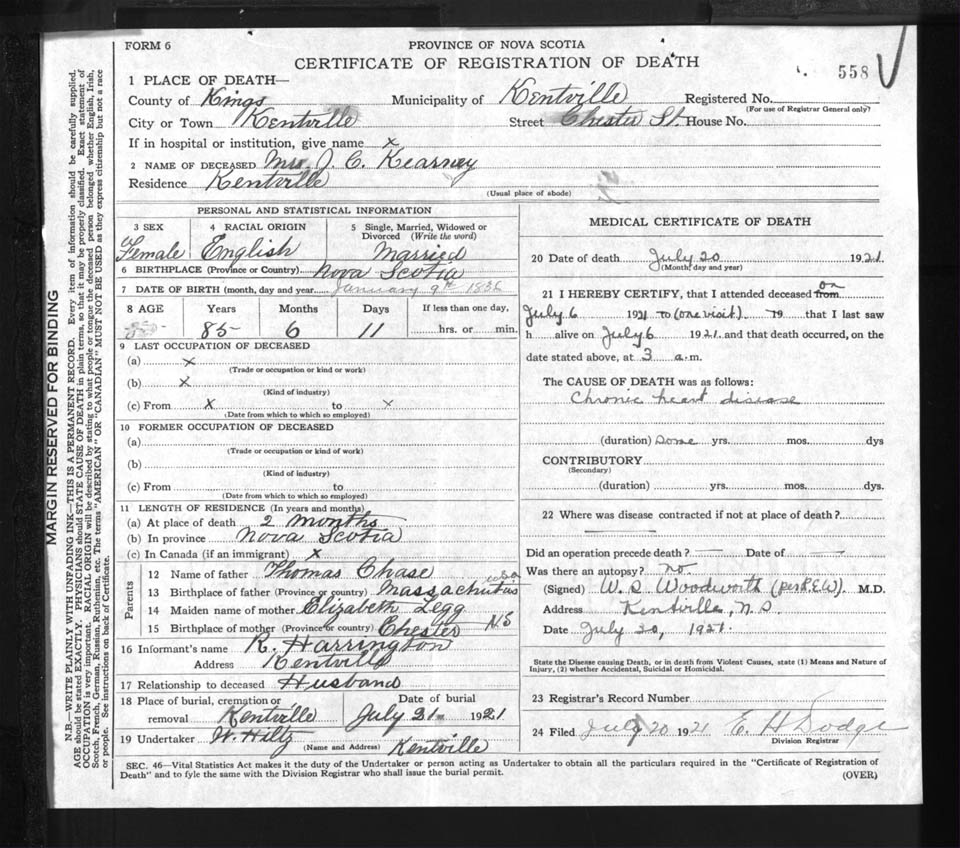 FORM 6
PROVINCE OF NOVA SCOTIA
CERTIFICATE OF REGISTRATION OF DEATH
558
1 PLACE OF DEATH—
County of Kings Municipality of Kentville Registered No.
(For use of Registrar General only?
City or Town Kentville Street Chester St. House No.
If in hospital or institution, give name x
2 NAME OF DECEASED Mrs J. C. Kearney
Residence Kentville
(Usual place of abode)
PERSONAL AND STATISTICAL INFORMATION
3 SEX
Female
4 RACIAL ORIGIN
English
5 Single, Married, Widowed or Divorced (Write the word)
Married
6 BIRTHPLACE (Province or Country) Nova Scotia
7 DATE OF BIRTH (month, day and year) January 9th 1836
8 AGE Years Months Days If less than one day,
85 6 11 hrs. or min.
9 LAST OCCUPATION OF DECEASED
(a) x
(Trade or occupation or kind or work)
(b) x
(Kind of industry)
(c) From x to x
(Date from which to which so employed)
10 FORMER OCCUPATION OF DECEASED
(a)
(Trade or occupation or kind of work)
(b)
(Kind of industry)
(c) From to
(Date from which to which so employed)
11 LENGTH OF RESIDENCE (In years and months)
(a) At place of death 2 months
(b) In province Nova Scotia
(c) In Canada (if an immigrant) x
Parents
12 Name of father Thomas Chase
13 Birthplace of father (Province or country) Massachutus
14 Maiden name of mother Elizabeth Legg
15 Birthplace of mother (Province or country) Chester NS
16 Informant's name R. Harrington
Address Kentville
17 Relationship to deceased Husband
18 Place of burial, cremation or removal Kentville
Date of burial July 21 1921
19 Undertaker W. Hiltz
(Name and Address) Kentville
MEDICAL CERTIFICATE OF DEATH
20 Date of death July 20 1921
(Month, day and year)
21 I HEREBY CERTIFY, that I attended deceased from on
July 6 1921 to (one visit) 19 that I last saw
h alive on July 6 1921. and that death occurred, on the
date stated above, at 3 a.m.
The CAUSE OF DEATH was as follows:
Chronic heart disease
(duration) Some yrs. mos. dys
CONTRIBUTORY
(Secondary)
(duration) yrs. mos. dys.
22 Where was disease contracted if not at place of death?
Did an operation precede death? — Date of —
Was there an autopsy? no
(Signed) W. S. Woodworth M.D.
Address Kentville, N.S.
Date July 20, 1921.
State the Disease causing Death, or in death from Violent Causes, state (1) Means and Nature of
Injury, (2) whether Accidental, Suicidal or Homicidal.
23 Registrar's Record Number
24 Filed July 20 1921 E. H. Dodge
Division Registrar
SEC. 46—Vital Statistics Act makes it the duty of the Undertaker or person acting as Undertaker to obtain all the particulars required in the "Certificate of Registration of
Death" and to fyle the same with the Division Registrar who shall issue the burial permit.
(OVER)
MARGIN RESERVED FOR BINDING
N.B.—WRITE PLAINLY WITH UNFADING INK—THIS IS A PERMANENT RECORD. Every item of information should be carefully supplied.
AGE should be stated EXACTLY. PHYSICIANS should STATE CAUSE OF DEATH in plain terms, so that it may be properly classified. Exact statement of
OCCUPATION is very important. RACIAL ORIGIN will be described by stating to what people or tongue the deceased person belonged whether English, Irish,
Scotch, French, German, Russian, Ruthenian, etc. The terms "AMERICAN" OR "CANADIAN" MUST NOT BE USED as they express citizenship but not a race
or people. See instructions on back of Certificate.